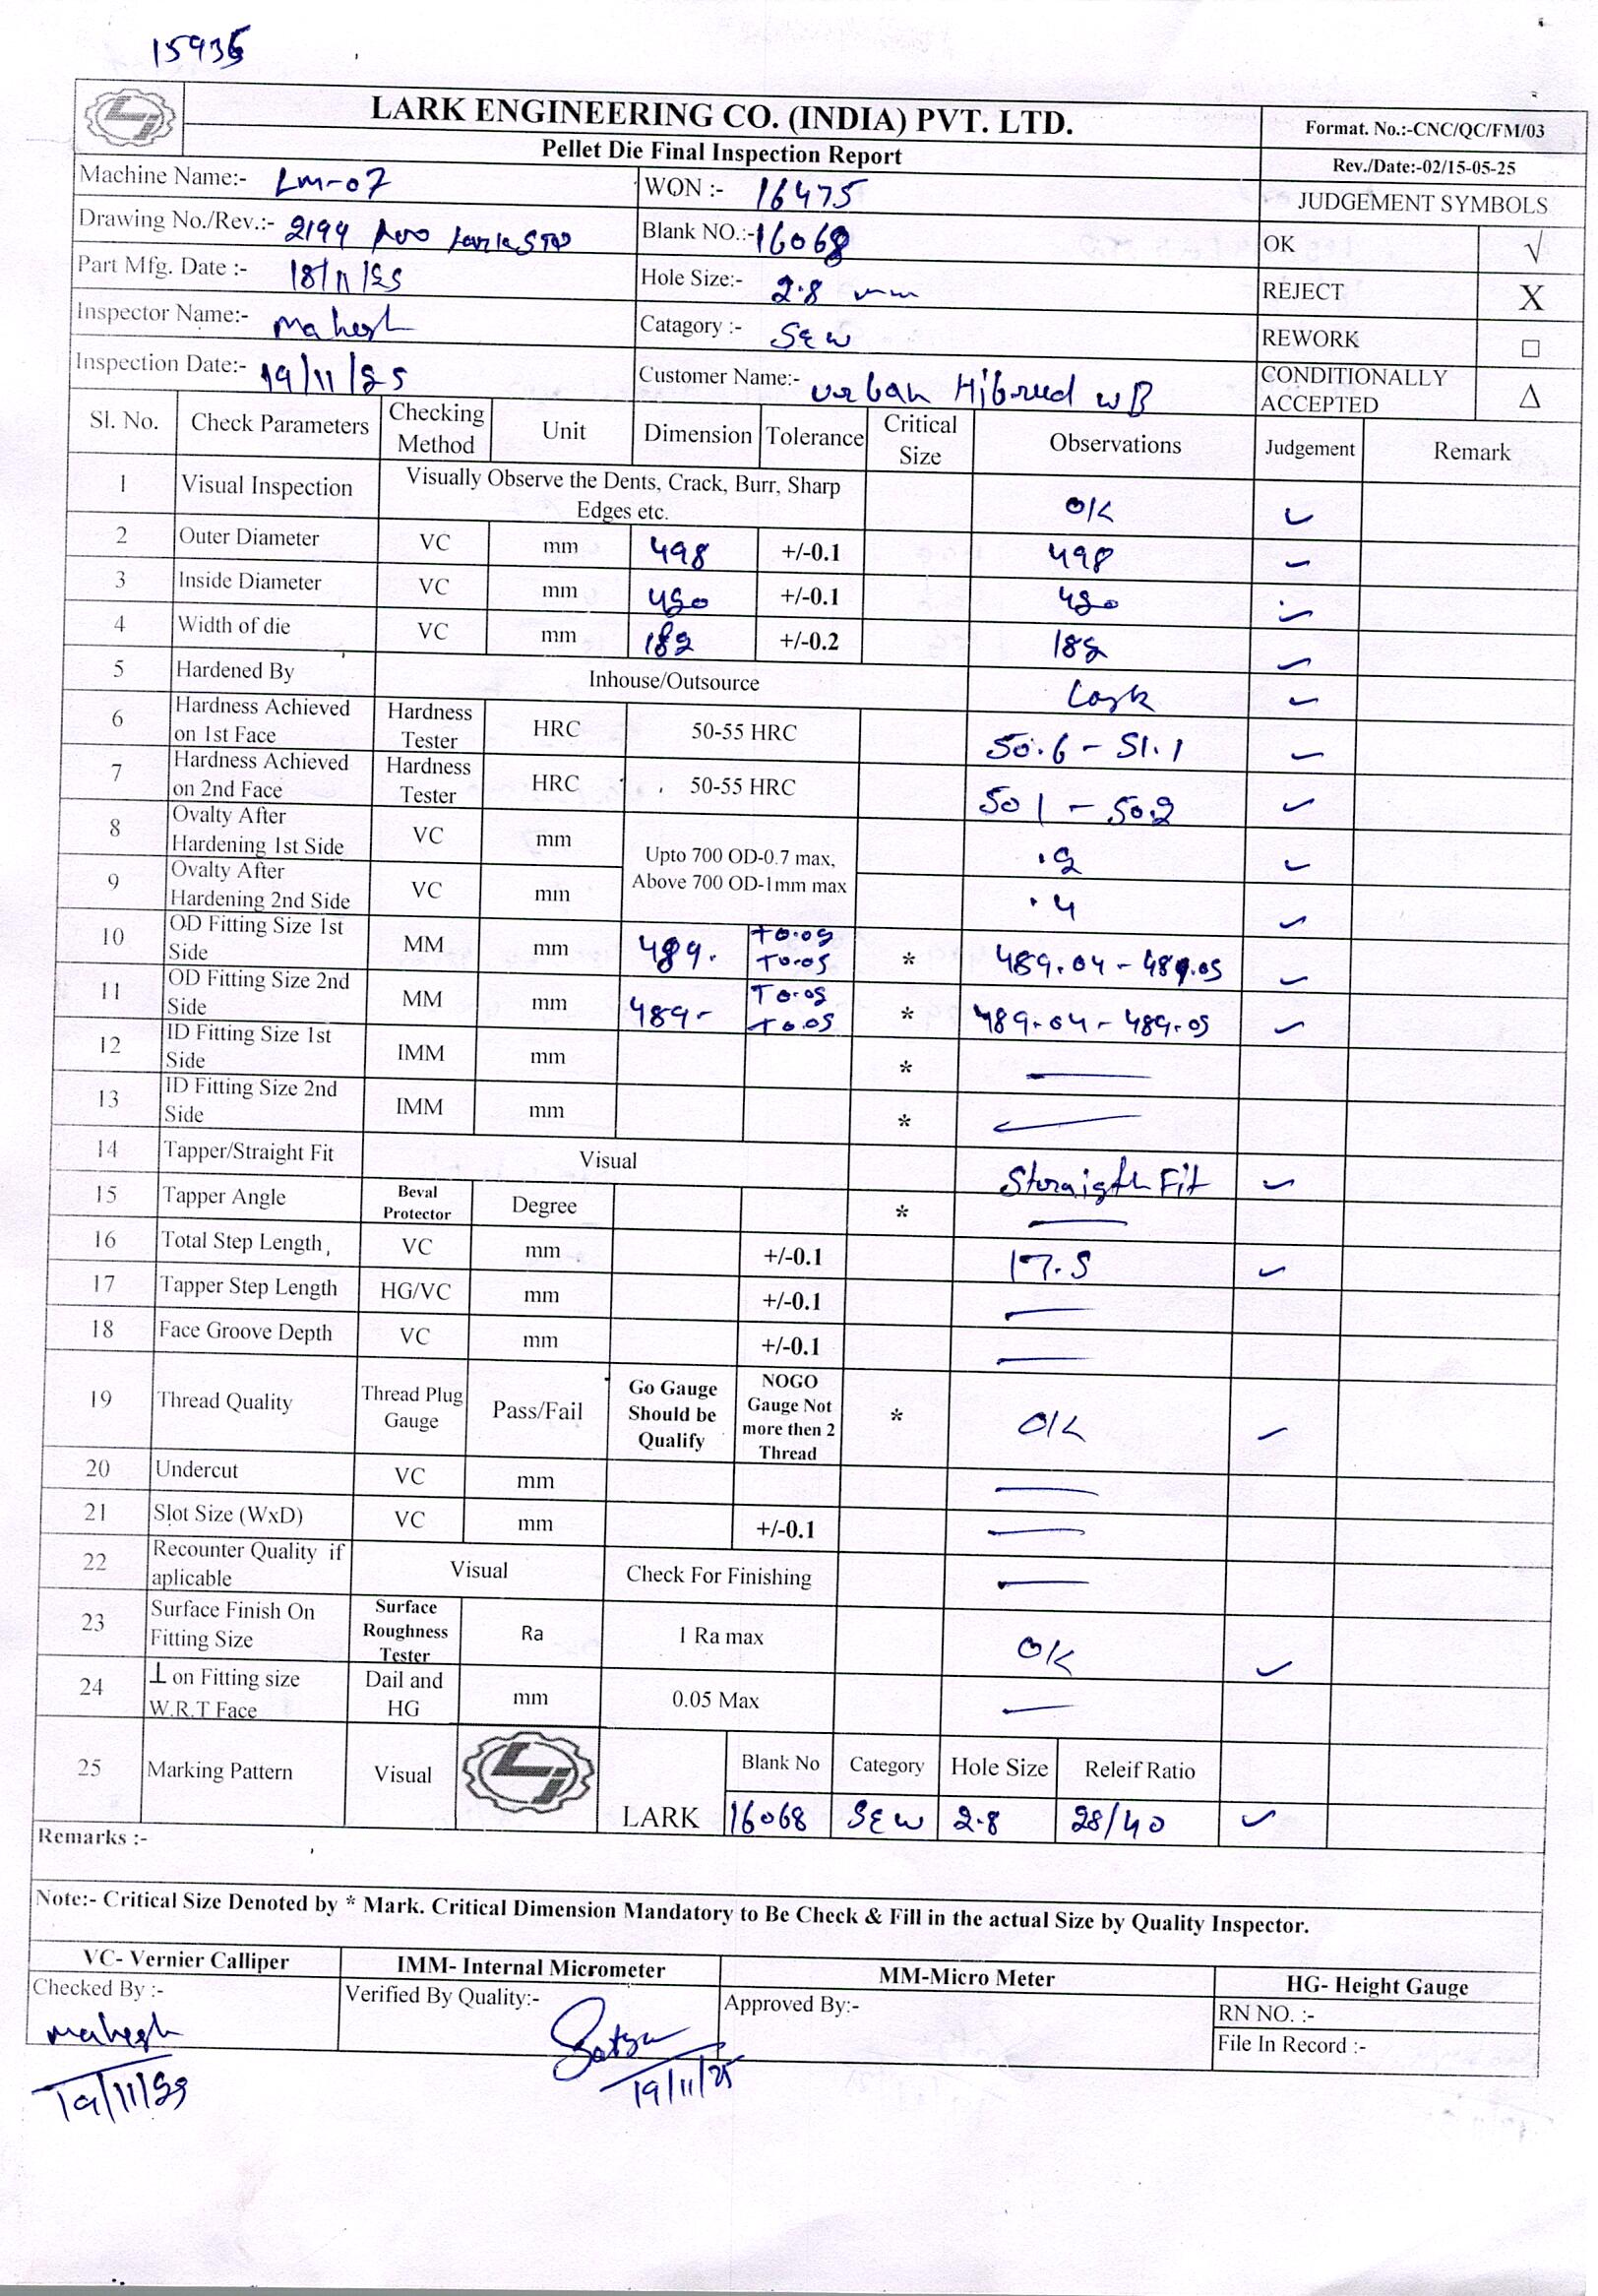 15935
LARK ENGINEERING CO. (INDIA) PVT. LTD.
Format. No.:-CNC/QC/FM/03
Pellet Die Final Inspection Report
Rev./Date:-02/15-05-25
Machine Name:- LM-07 WON :- 16475 JUDGEMENT SYMBOLS
Drawing No./Rev.:- 2194 Blank NO.:- 16068 OK √
Part Mfg. Date :- 18/11/25 Hole Size:- 2.8 mm REJECT X
Inspector Name:- Mahesh Catagory :- SEW REWORK □
Inspection Date:- 19/11/25 Customer Name:- Urban Hibrud WB CONDITIONALLY ACCEPTED Δ
Sl. No. Check Parameters Checking Method Unit Dimension Tolerance Critical Size Observations Judgement Remark
1 Visual Inspection Visually Observe the Dents, Crack, Burr, Sharp Edges etc. OK ✓
2 Outer Diameter VC mm 498 +/-0.1 498 ✓
3 Inside Diameter VC mm +/-0.1 ✓
4 Width of die VC mm 182 +/-0.2 182 ✓
5 Hardened By Inhouse/Outsource Lark ✓
6 Hardness Achieved on 1st Face Hardness Tester HRC 50-55 HRC 50.6 - 51.1 ✓
7 Hardness Achieved on 2nd Face Hardness Tester HRC 50-55 HRC 50 1 - 50.2 ✓
8 Ovalty After Hardening 1st Side VC mm Upto 700 OD-0.7 max, Above 700 OD-1mm max .2 ✓
9 Ovalty After Hardening 2nd Side VC mm .4 ✓
10 OD Fitting Size 1st Side MM mm 489. +0.05 * 489.04 - 489.05 ✓
11 OD Fitting Size 2nd Side MM mm 489- +0.05 * 489.04 - 489.05 ✓
12 ID Fitting Size 1st Side IMM mm * —
13 ID Fitting Size 2nd Side IMM mm * —
14 Tapper/Straight Fit Visual Straigth Fit ✓
15 Tapper Angle Beval Protector Degree * —
16 Total Step Length, VC mm +/-0.1 17.5 ✓
17 Tapper Step Length HG/VC mm +/-0.1 —
18 Face Groove Depth VC mm +/-0.1 —
19 Thread Quality Thread Plug Gauge Pass/Fail Go Gauge Should be Qualify NOGO Gauge Not more then 2 Thread * OK ✓
20 Undercut VC mm —
21 Slot Size (WxD) VC mm +/-0.1 —
22 Recounter Quality if aplicable Visual Check For Finishing —
23 Surface Finish On Fitting Size Surface Roughness Tester Ra 1 Ra max OK ✓
24 ⊥ on Fitting size W.R.T Face Dail and HG mm 0.05 Max —
25 Marking Pattern Visual LARK Blank No Category Hole Size Releif Ratio
16068 SEW 2.8 28/40 ✓
Remarks :-
Note:- Critical Size Denoted by * Mark. Critical Dimension Mandatory to Be Check & Fill in the actual Size by Quality Inspector.
VC- Vernier Calliper IMM- Internal Micrometer MM-Micro Meter HG- Height Gauge
Checked By :- Verified By Quality:- Approved By:- RN NO. :-
Mahesh File In Record :-
19/11/25 19/11/25